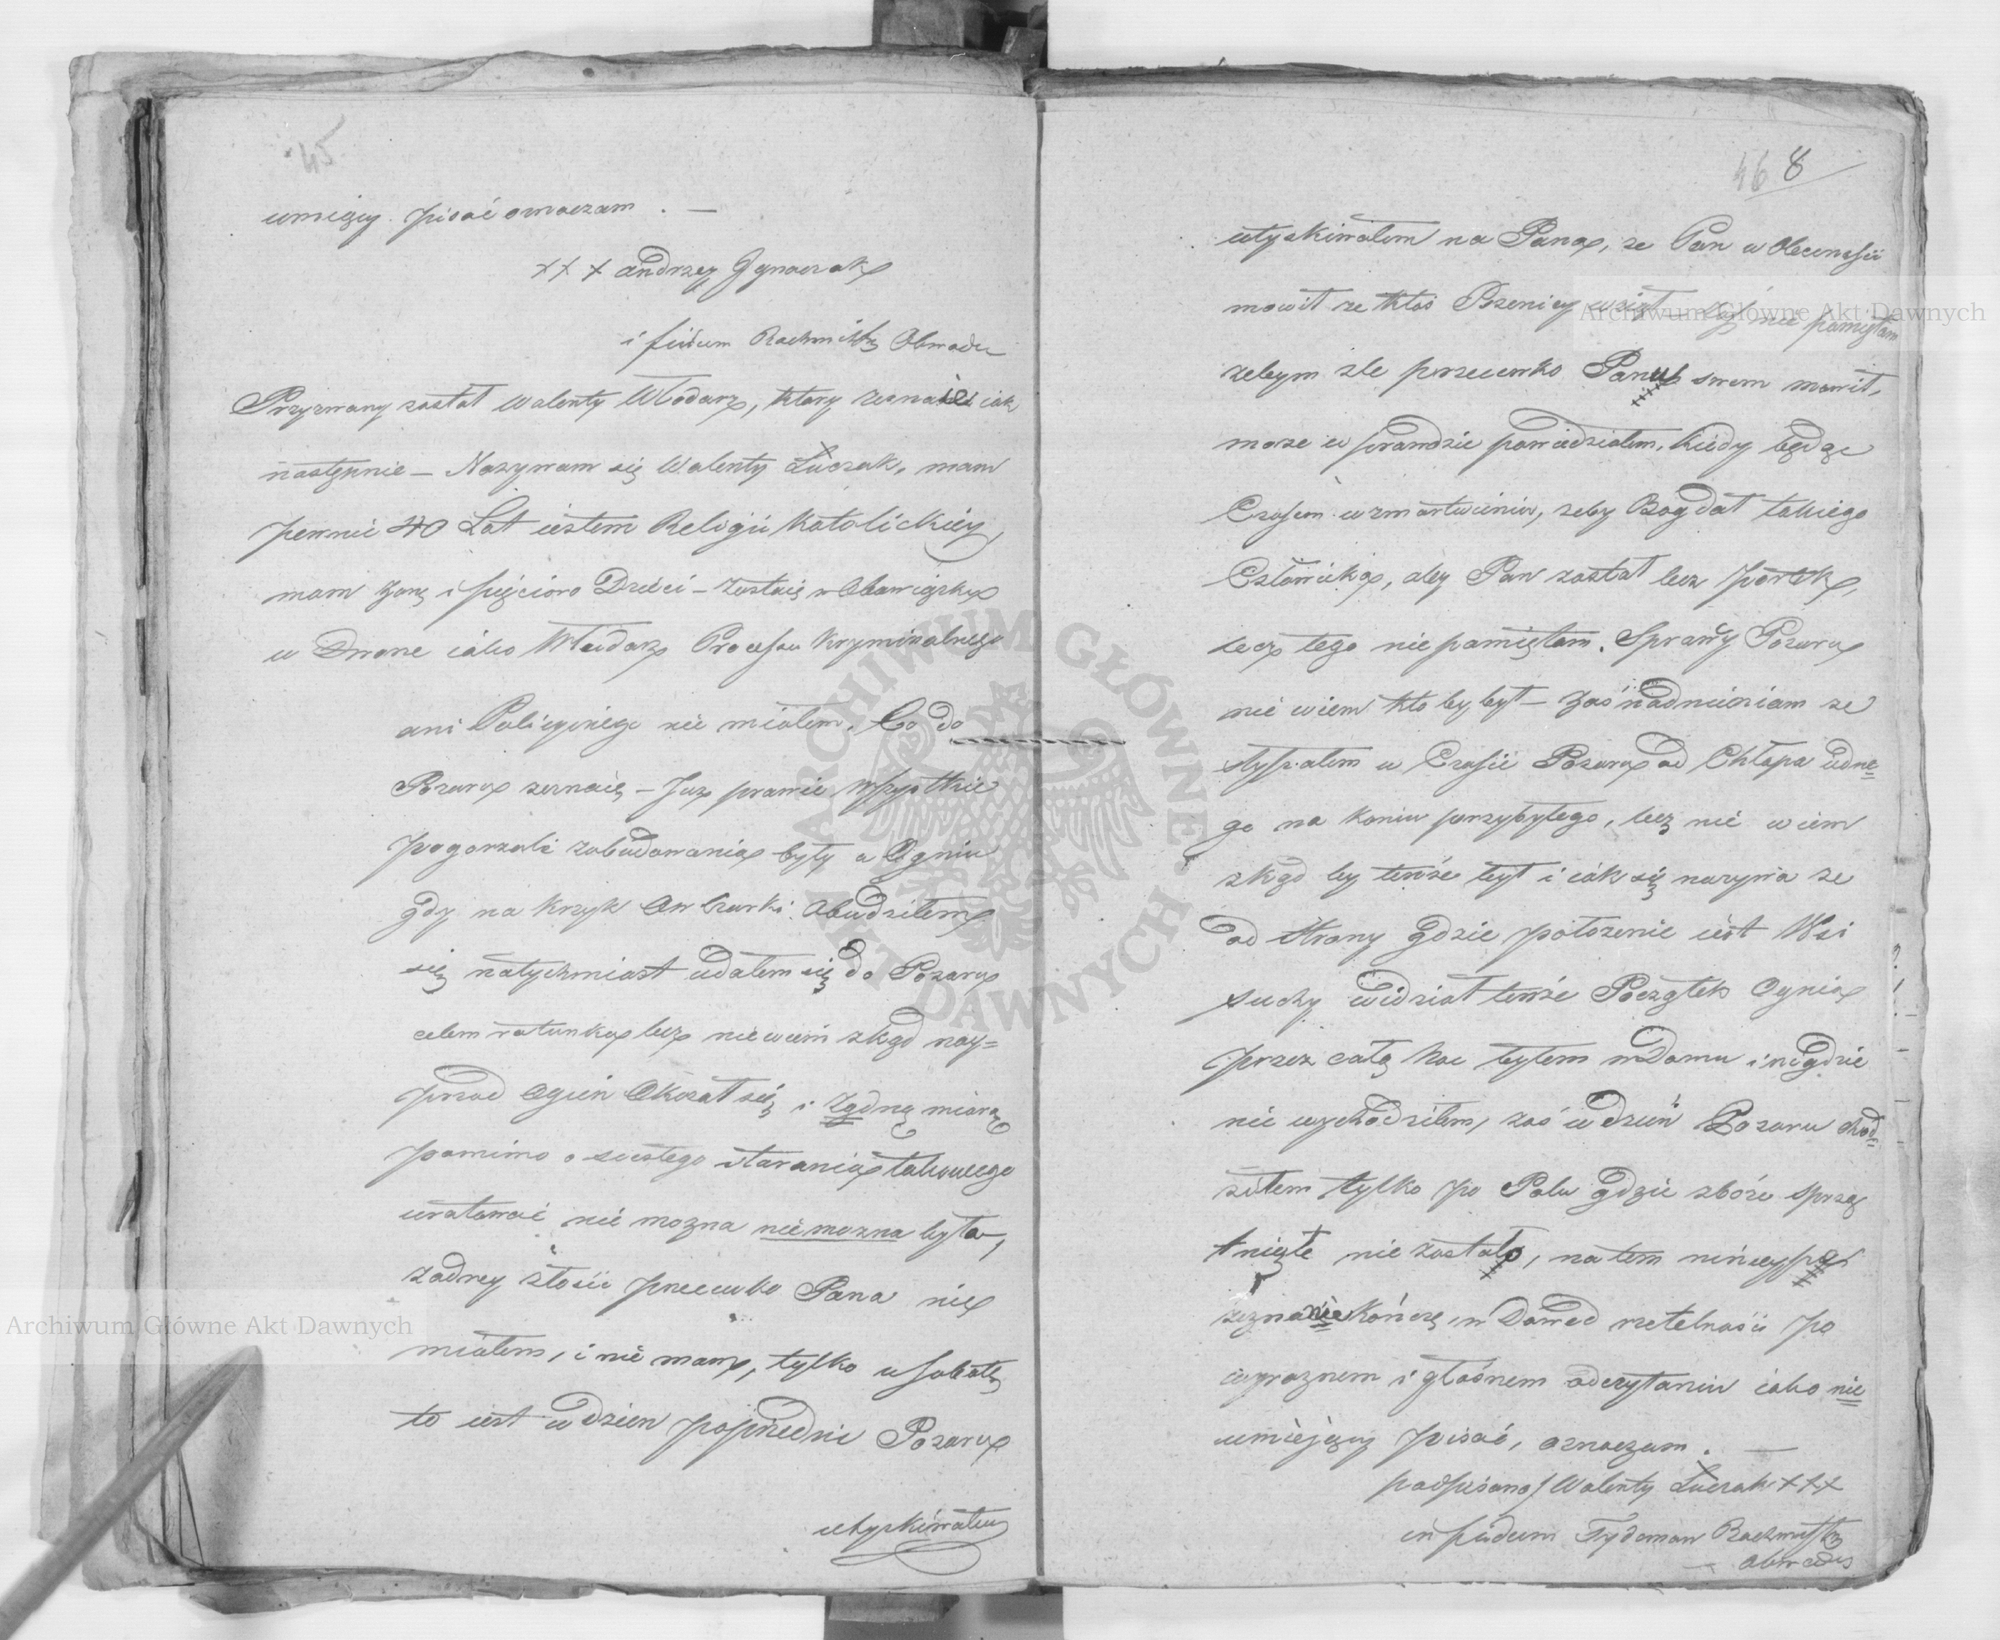 45
umięjący pisać oznaczam . —
+ + + Andrzey Ignaczak
i fidem Rachmistrz Obwodu
Przyzwany został Walenty Włodarz, ktory zeznaie iak
następnie — Nazywam się Walenty Łuczak, mam
pewnie 40 Lat iestem Religii Katolickiey
mam żonę i pięcioro Dzieci — zostaię w Obowiązku
w Dworze iako Włodarz Processu Kryminalnego
ani Policyinego nie miałem. Co do
Pozaru zeznaię — Juz prawie wszystkie
pogorzałe zabudowania były w Ogniu
gdy na krzyk Owczarki obudziłem
się natychmiast udałem się do Pozaru
celem ratunku lecz nie wiem zkąd nay=
przod Ogień Okazał się i żadną miarą
pomimo szczerego starania takowego
uratować nie mozna nie mozna było,
zadney złości przeciwko Pana nie
miałem, i nie mam, tylko w Sobotę
to iest w dzien poprzedni Pozaru
utyskiwałem
46 8
utyskiwałem na Pana, ze Pan w Obecności
mowił ze ktos Pszenicy wziął lecz nie pamiętam
zebym zle przeciwko Panu swem mowił,
moze w prawdzie powiedziałem, kiedy będąc
Czasem w zmartwieniu, zeby Bog dał takiego
Człowieka, aby Pan został bez portek,
lecz tego nie pamiętam. Sprawcy Pozaru
nie wiem kto by był — zaś nadmieniam ze
słyszałem w Czasie Pozaru od Chłopa iedne=
go na koniu przybyłego, lecz nie wiem
zkąd by tenże był i iak się nazywa ze
od strony gdzie położenie iest Wsi
suchy widział tenże Początek Ognia
przez całą noc byłem w Domu i nigdzie
nie wychodziłem, zaś w dzień Pozaru chod=
ziłem tylko po Polu gdzie zboże sprzą
tnięte nie zostało, na tem ninieysze
zeznanie kończę w Dowod rzetelności po
wyraznem i głośnem odczytaniu iako nie
umiejący pisać, oznaczam . —
podpisano/ Walenty Łuczak + + +
in fidem Tydeman Rachmistrz
Obwodu
Archiwum Główne Akt Dawnych
Archiwum Główne Akt Dawnych
ARCHIWUM GŁÓWNE AKT DAWNYCH